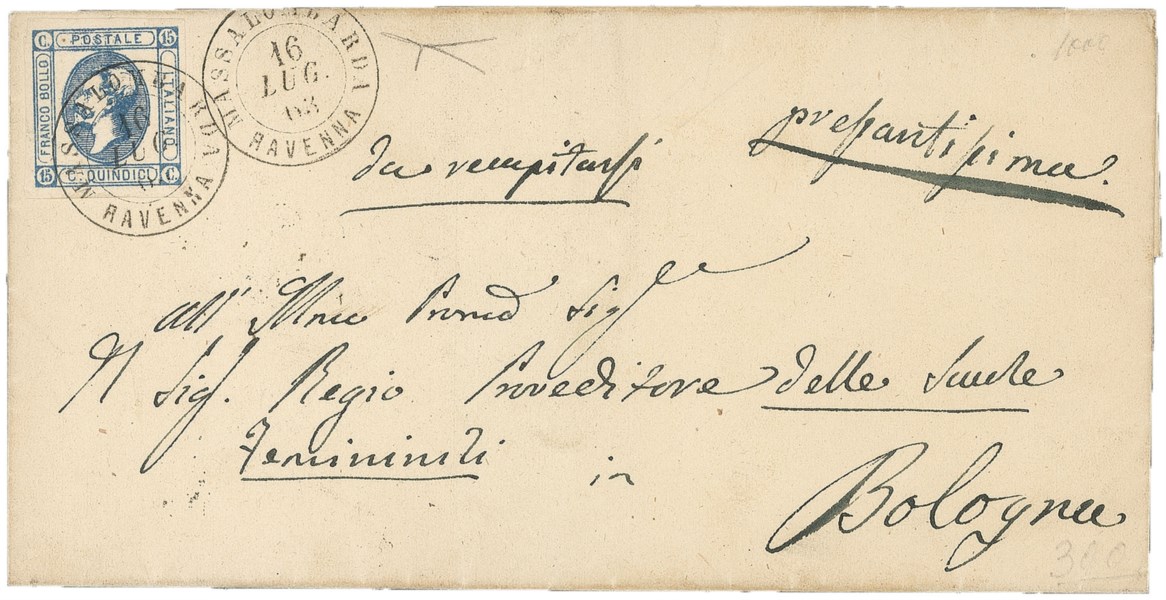 C. POSTALE 15
FRANCO BOLLO
ITALIANO
15 C. QUINDICI C.
MASSALOMBARDA
16
LUG.
63
RAVENNA
MASSALOMBARDA
16
LUG
RAVENNA
1000
pressantissima.
da recapitarsi
All' Illmo Sigr
Al Sigr. Regio Proveditore delle Scuole
Feminili in
Bologna
300